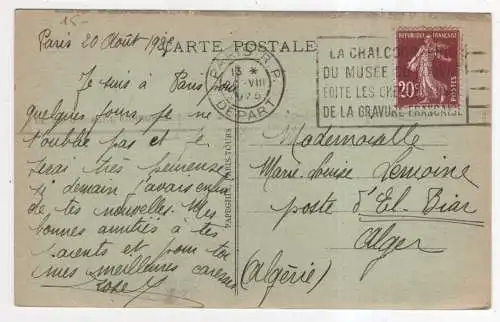 15-
Paris 20 Août
CARTE POSTALE
Je suis à Paris pour
quelques jours je ne
t'oublie pas et je
serai très heureuse
si demain j'avais
de tes nouvelles. Mes
bonnes amitiés à tes
parents et pour toi
mes meilleures caresses
Rose
PARIS R.P.
13 *
VIII
DEPART
LA CHALCO
DU MUSÉE
ÉDITE LES CHE
DE LA GRAVURE FRANÇAISE
REPUBLIQUE FRANÇAISE
20c
POSTES
PAPEGHIN, PARIS-TOURS
Mademoiselle
Marie-Louise Lemoine
poste d'El-Biar
Alger
(Algérie)